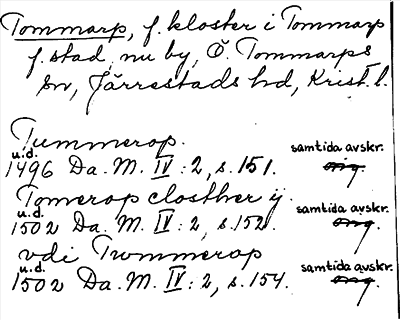 Tommarp, f. kloster i Tommarp
f. stad, nu by, Ö. Tommarps
sn, Järrestads hd, Krist. l.
Tummerop.
u.d. samtida avskr.
1496 Da. M. IV: 2, s. 151. orig.
Tomerop closther y.
u.d. samtida avskr.
1502 Da. M. IV: 2, s. 152. orig.
vdi Trommerop
u.d. samtida avskr.
1502 Da. M. IV: 2, s. 154. orig.